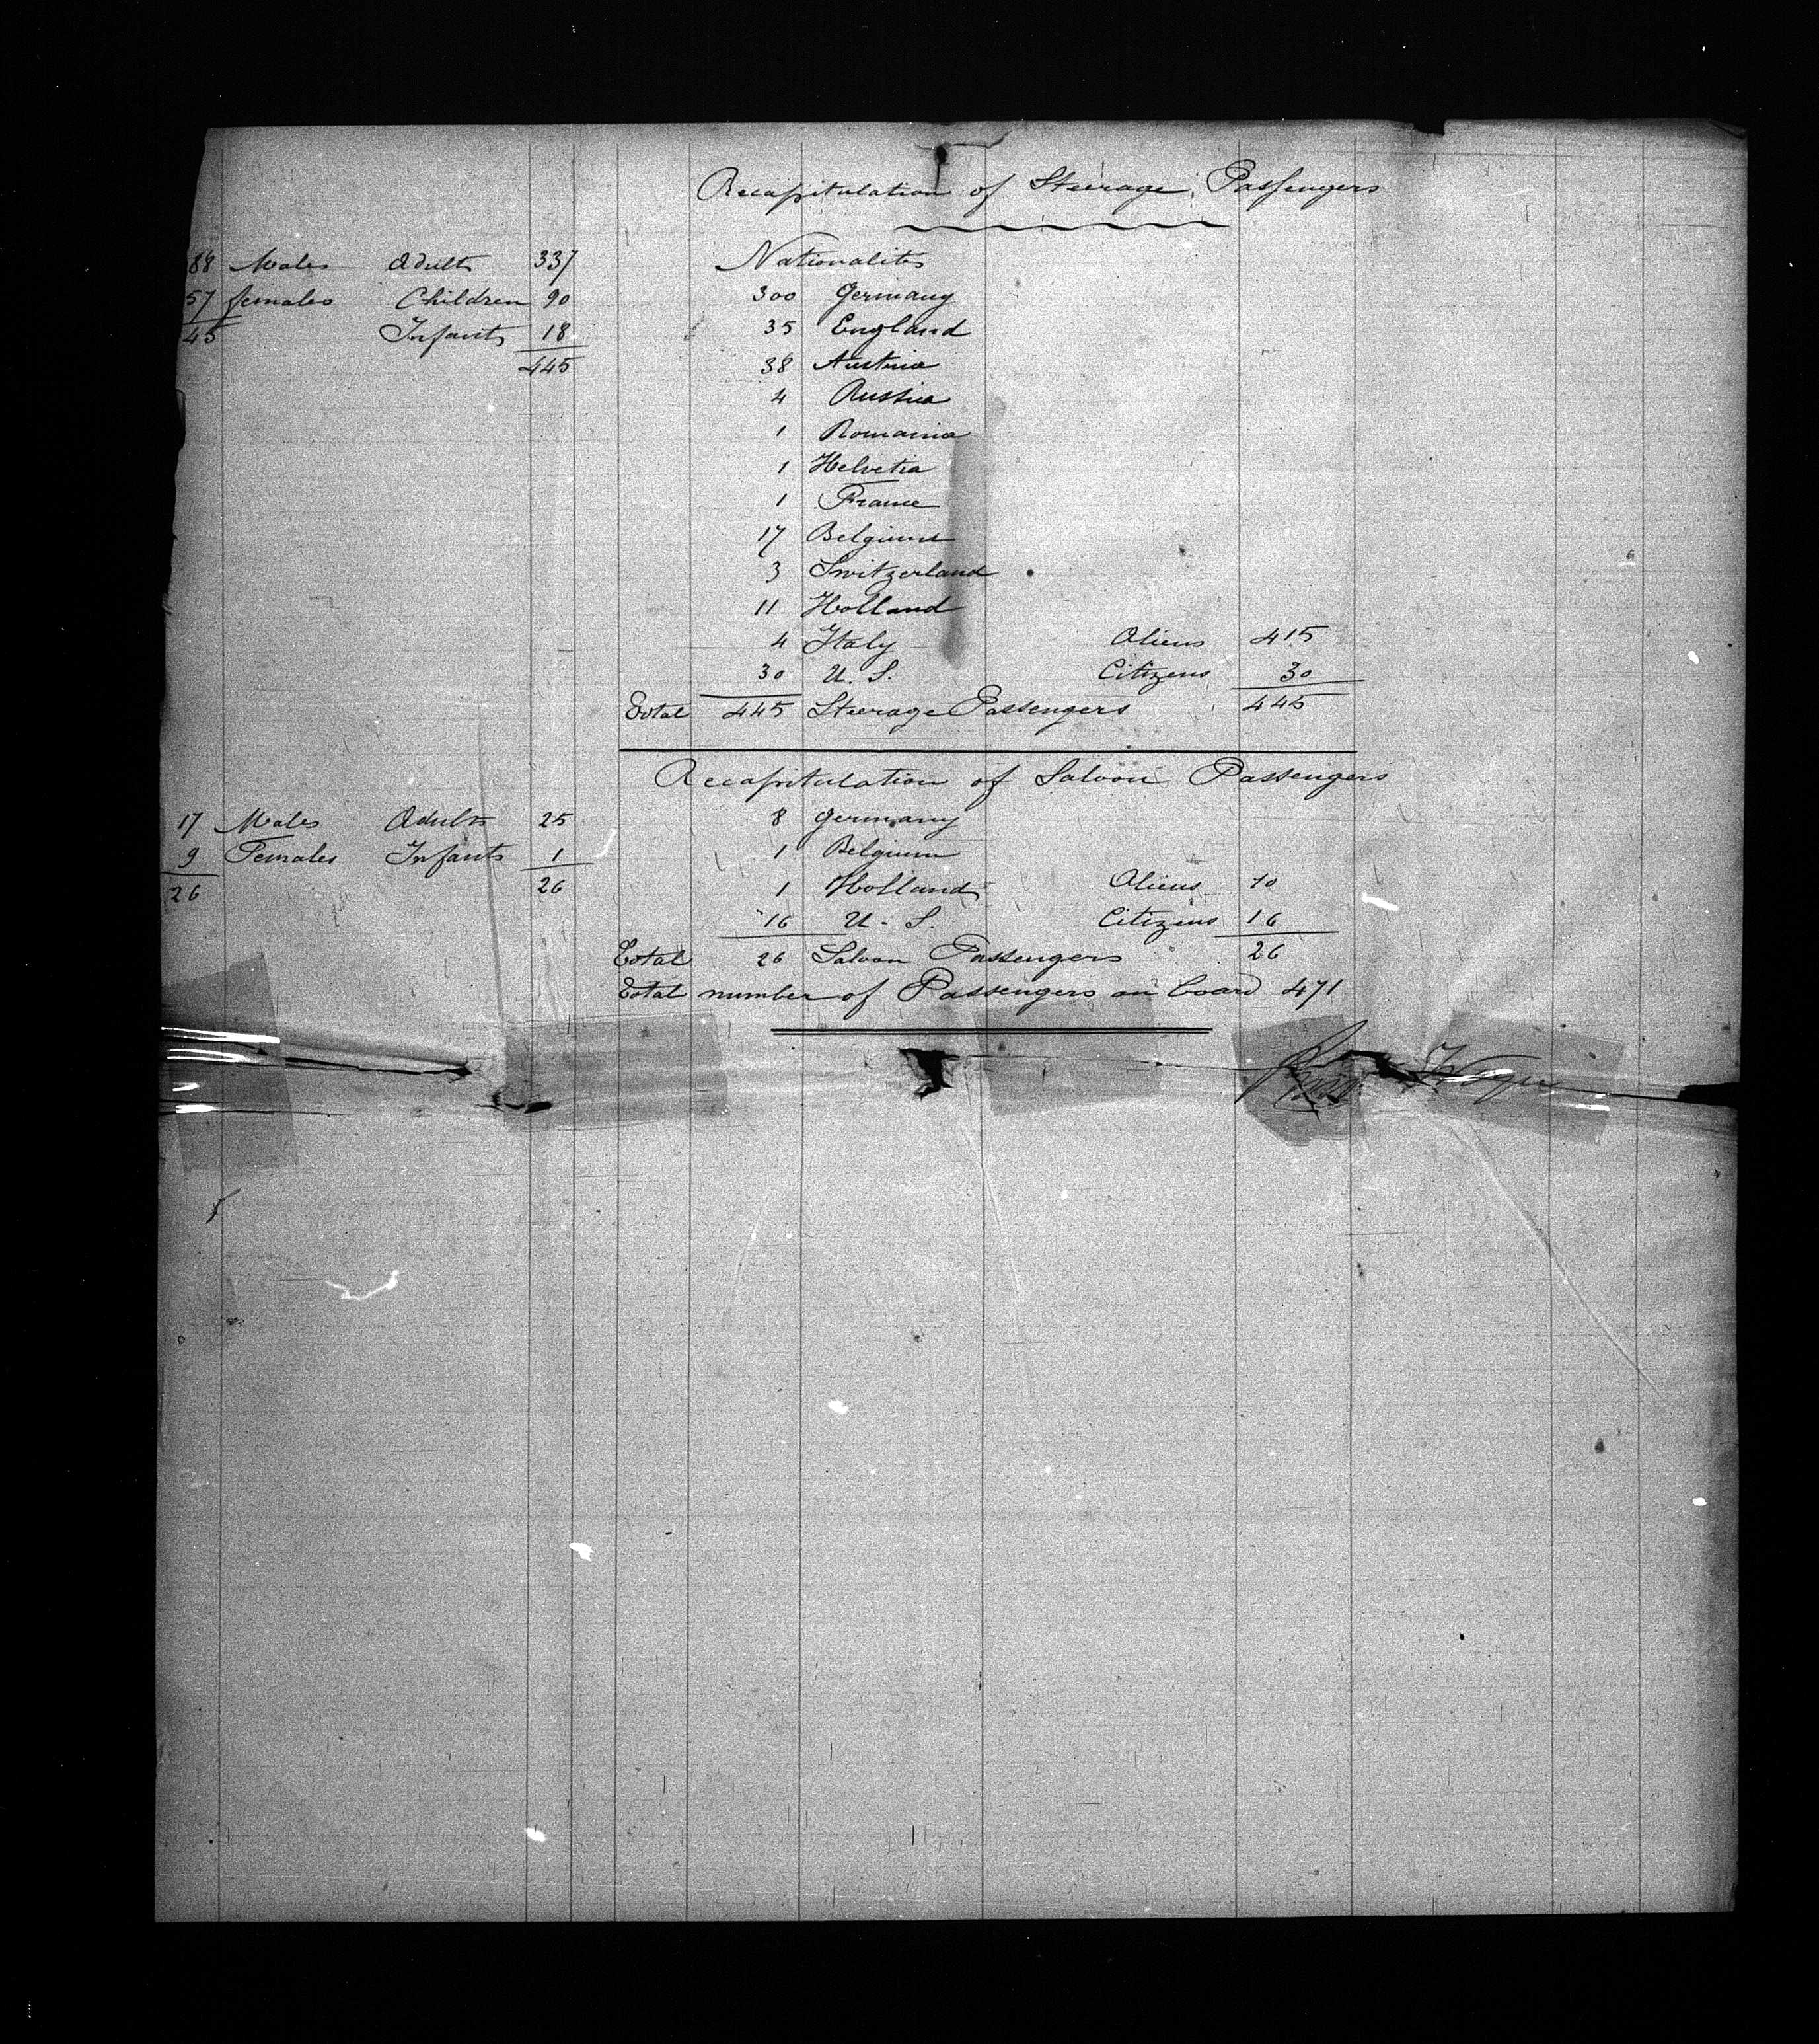 Recapitulation of Steerage Passengers
88 Males Adults 337 Nationalites
57 females Children 90 300 Germany
45 Infants 18 35 England
445 38 Austria
4 Russia
1 Romania
1 Helvetia
1 France
17 Belgium
3 Switzerland
11 Holland
4 Italy Aliens 415
30 U. S. Citizens 30
Total 445 Steerage Passengers 445
Recapitulation of Saloon Passengers
17 Males Adults 25 8 Germany
9 Females Infants 1 1 Belgium
26 26 1 Holland Aliens 10
16 U. S. Citizens 16
Total 26 Saloon Passengers 26
Total number of Passengers on board 471